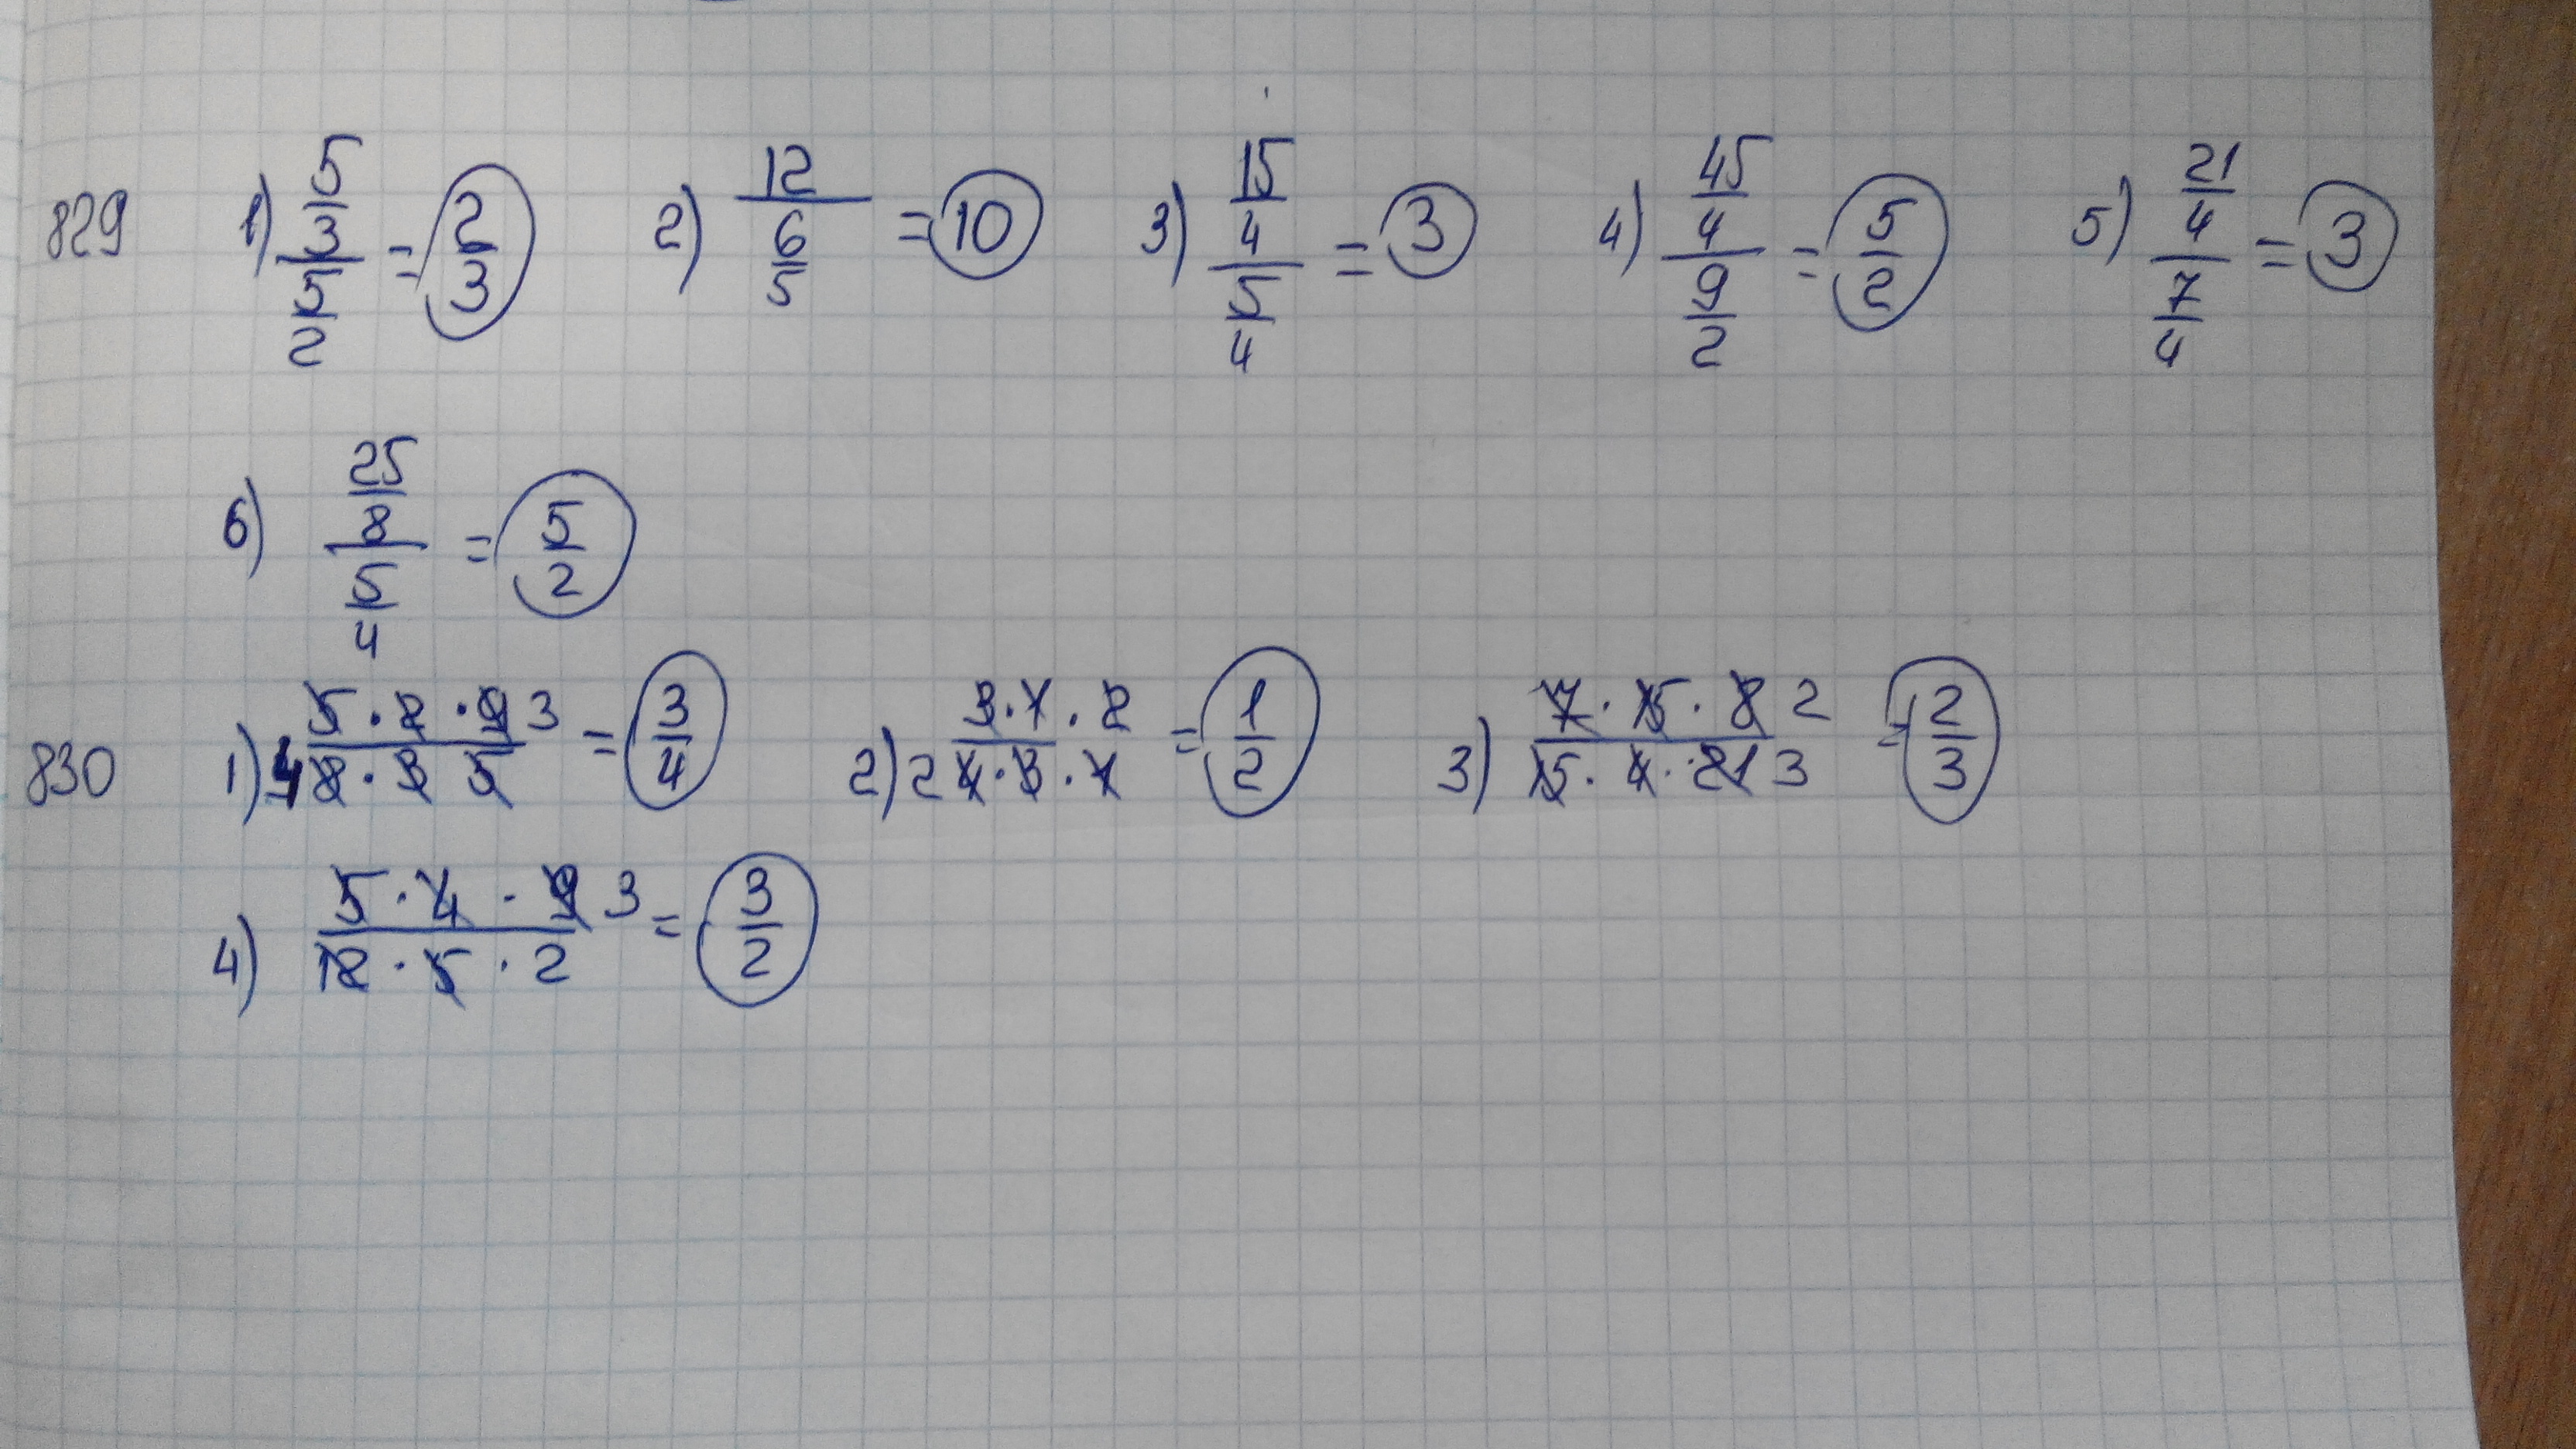 829 1) 5/3 / 5/2 = 2/3 2) 12 / 6/5 = 10 3) 15/4 / 5/4 = 3 4) 45/4 / 9/2 = 5/2 5) 21/4 / 7/4 = 3
6) 25/8 / 5/4 = 5/2
830 1) 5 · 2 · 9 3 / 4 8 · 3 5 = 3/4 2) 3 · 1 · 2 / 2 4 · 3 · 1 = 1/2 3) 7 · 15 · 8 2 / 15 · 4 · 21 3 = 2/3
4) 5 · 4 · 9 3 / 12 · 5 · 2 = 3/2